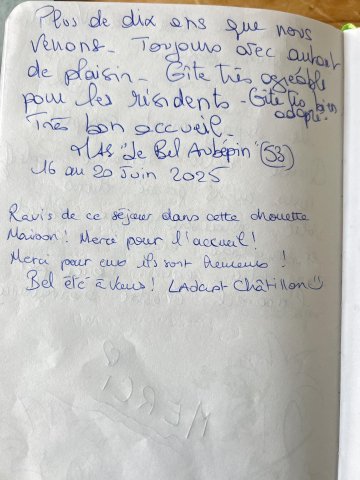 Plus de dix ans que nous
venons - Toujours avec autant
de plaisir - Gîte très agréable
pour les résidents - Gîte très bien
adapté.
Très bon accueil -
MAS "de Bel Aubépin" (53)
16 au 20 Juin 2025
Ravis de ce séjour dans cette chouette
Maison! Merci pour l'accueil!
Merci pour eux ils sont heureux!
Bel été à vous! Ladapt Châtillon
MERCI